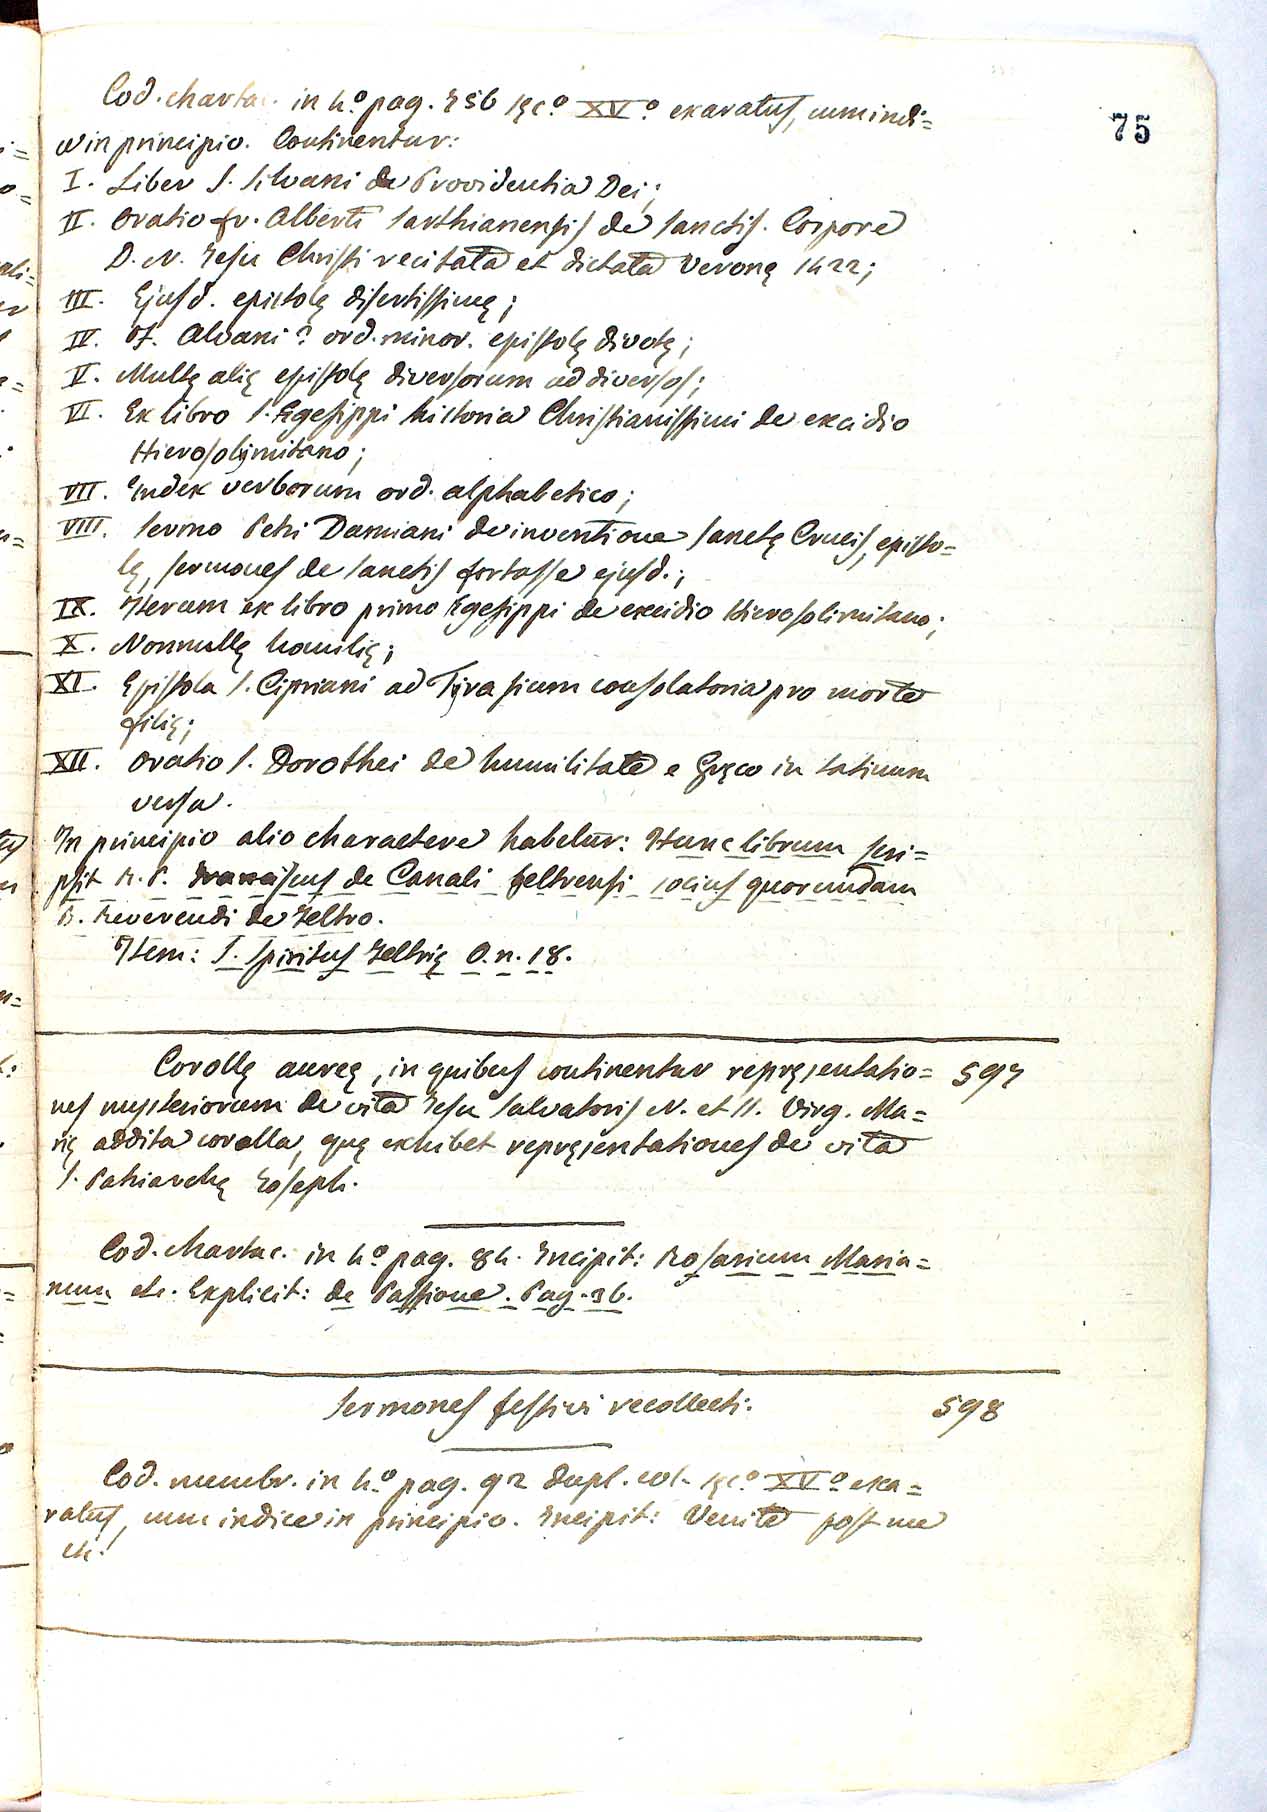 75
Cod. chartac. in 4.º pag. 356 sęc.º XVº exaratus, cum indi=
ce in principio. Continentur:
I. Liber S. Silvani de Providentia Dei;
II. Oratio fr. Alberti Sarthianensis de Sanctis. Corpore
D. N. Jesu Christi recitata et dictata Veronę 1422;
III. Ejusd. epistolę disertissimę;
IV. Alvani? ord. minor. epistolę divotę;
V. Multę alię epistolę diversorum ad diversos;
VI. Ex libro S. Egesippi historia Christianissimi de excidio
Hierosolymitano;
VII. Index verborum ord. alphabetico;
VIII. Sermo Petri Damiani de inventione Sanctę Crucis, episto=
lę, sermones de Sanctis fortasse ejusd.;
IX. Iterum ex libro primo Egesippi de excidio Hierosolimitano;
X. Nonnullę homilię;
XI. Epistola S. Cipriani ad Tyrasium consolatoria pro morte
filię;
XII. Oratio S. Dorothei de humilitate e Gręco in latinum
versa.
In principio alio charactere habetur: Hunc librum scri=
psit R. P. Franciscus de Canali feltrensi socius quorumdam
B. Reverendi de Feltro.
Item: S. Spiritus Feltrię O. n. 18.
Corollę aureę, in quibus continentur repręsentatio= 597
nes mysteriorum de vita Jesu Salvatoris N. et M. Virg. Ma=
rię addita corolla, quę exhibet repręsentationes de vita
S. Patriarchę Joseph.
Cod. chartac. in 4.º pag. 84. Incipit: Rosarium Maria=
num etc. Explicit: de Passione. Pag. 36.
Sermones festivi recollecti. 598
Cod. membr. in 4.º pag. 92 dupl. col. sęc.º XVº exa=
ratus, cum indice in principio. Incipit: Venite post me
etc.